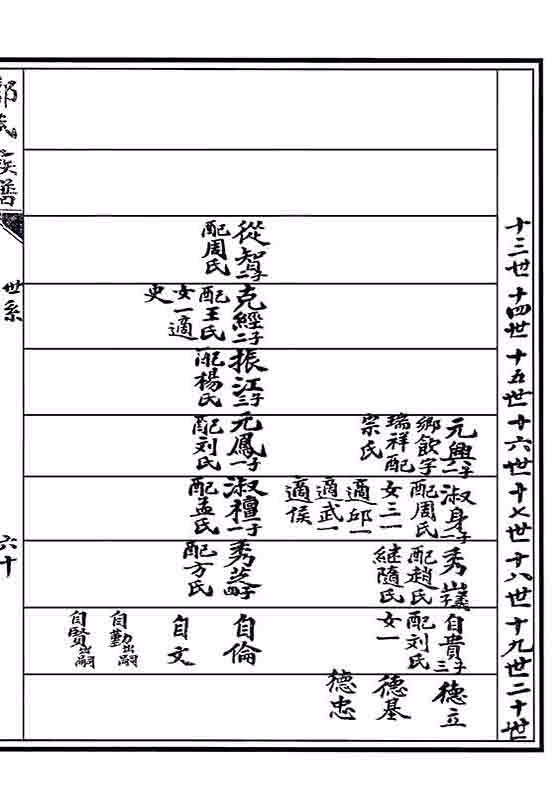 十三世
十四世
十五世
十六世
十七世
十八世
十九世
二十世
從智一子
配周氏
克經二子
配王氏
女一適
史
振江二子
配楊氏
元興二子
鄉飲字
瑞祥配
宗氏
元鳳一子
配刘氏
淑身一子
配周氏
女三一
適邱一
適武一
適侯
淑檀一子
配孟氏
秀嶬
配趙氏
継隨氏
秀芝四子
配方氏
自貴三子
配刘氏
女一
自倫
自文
自勤出嗣
自賢出嗣
德立
德基
德忠
氏族譜
世系
六十